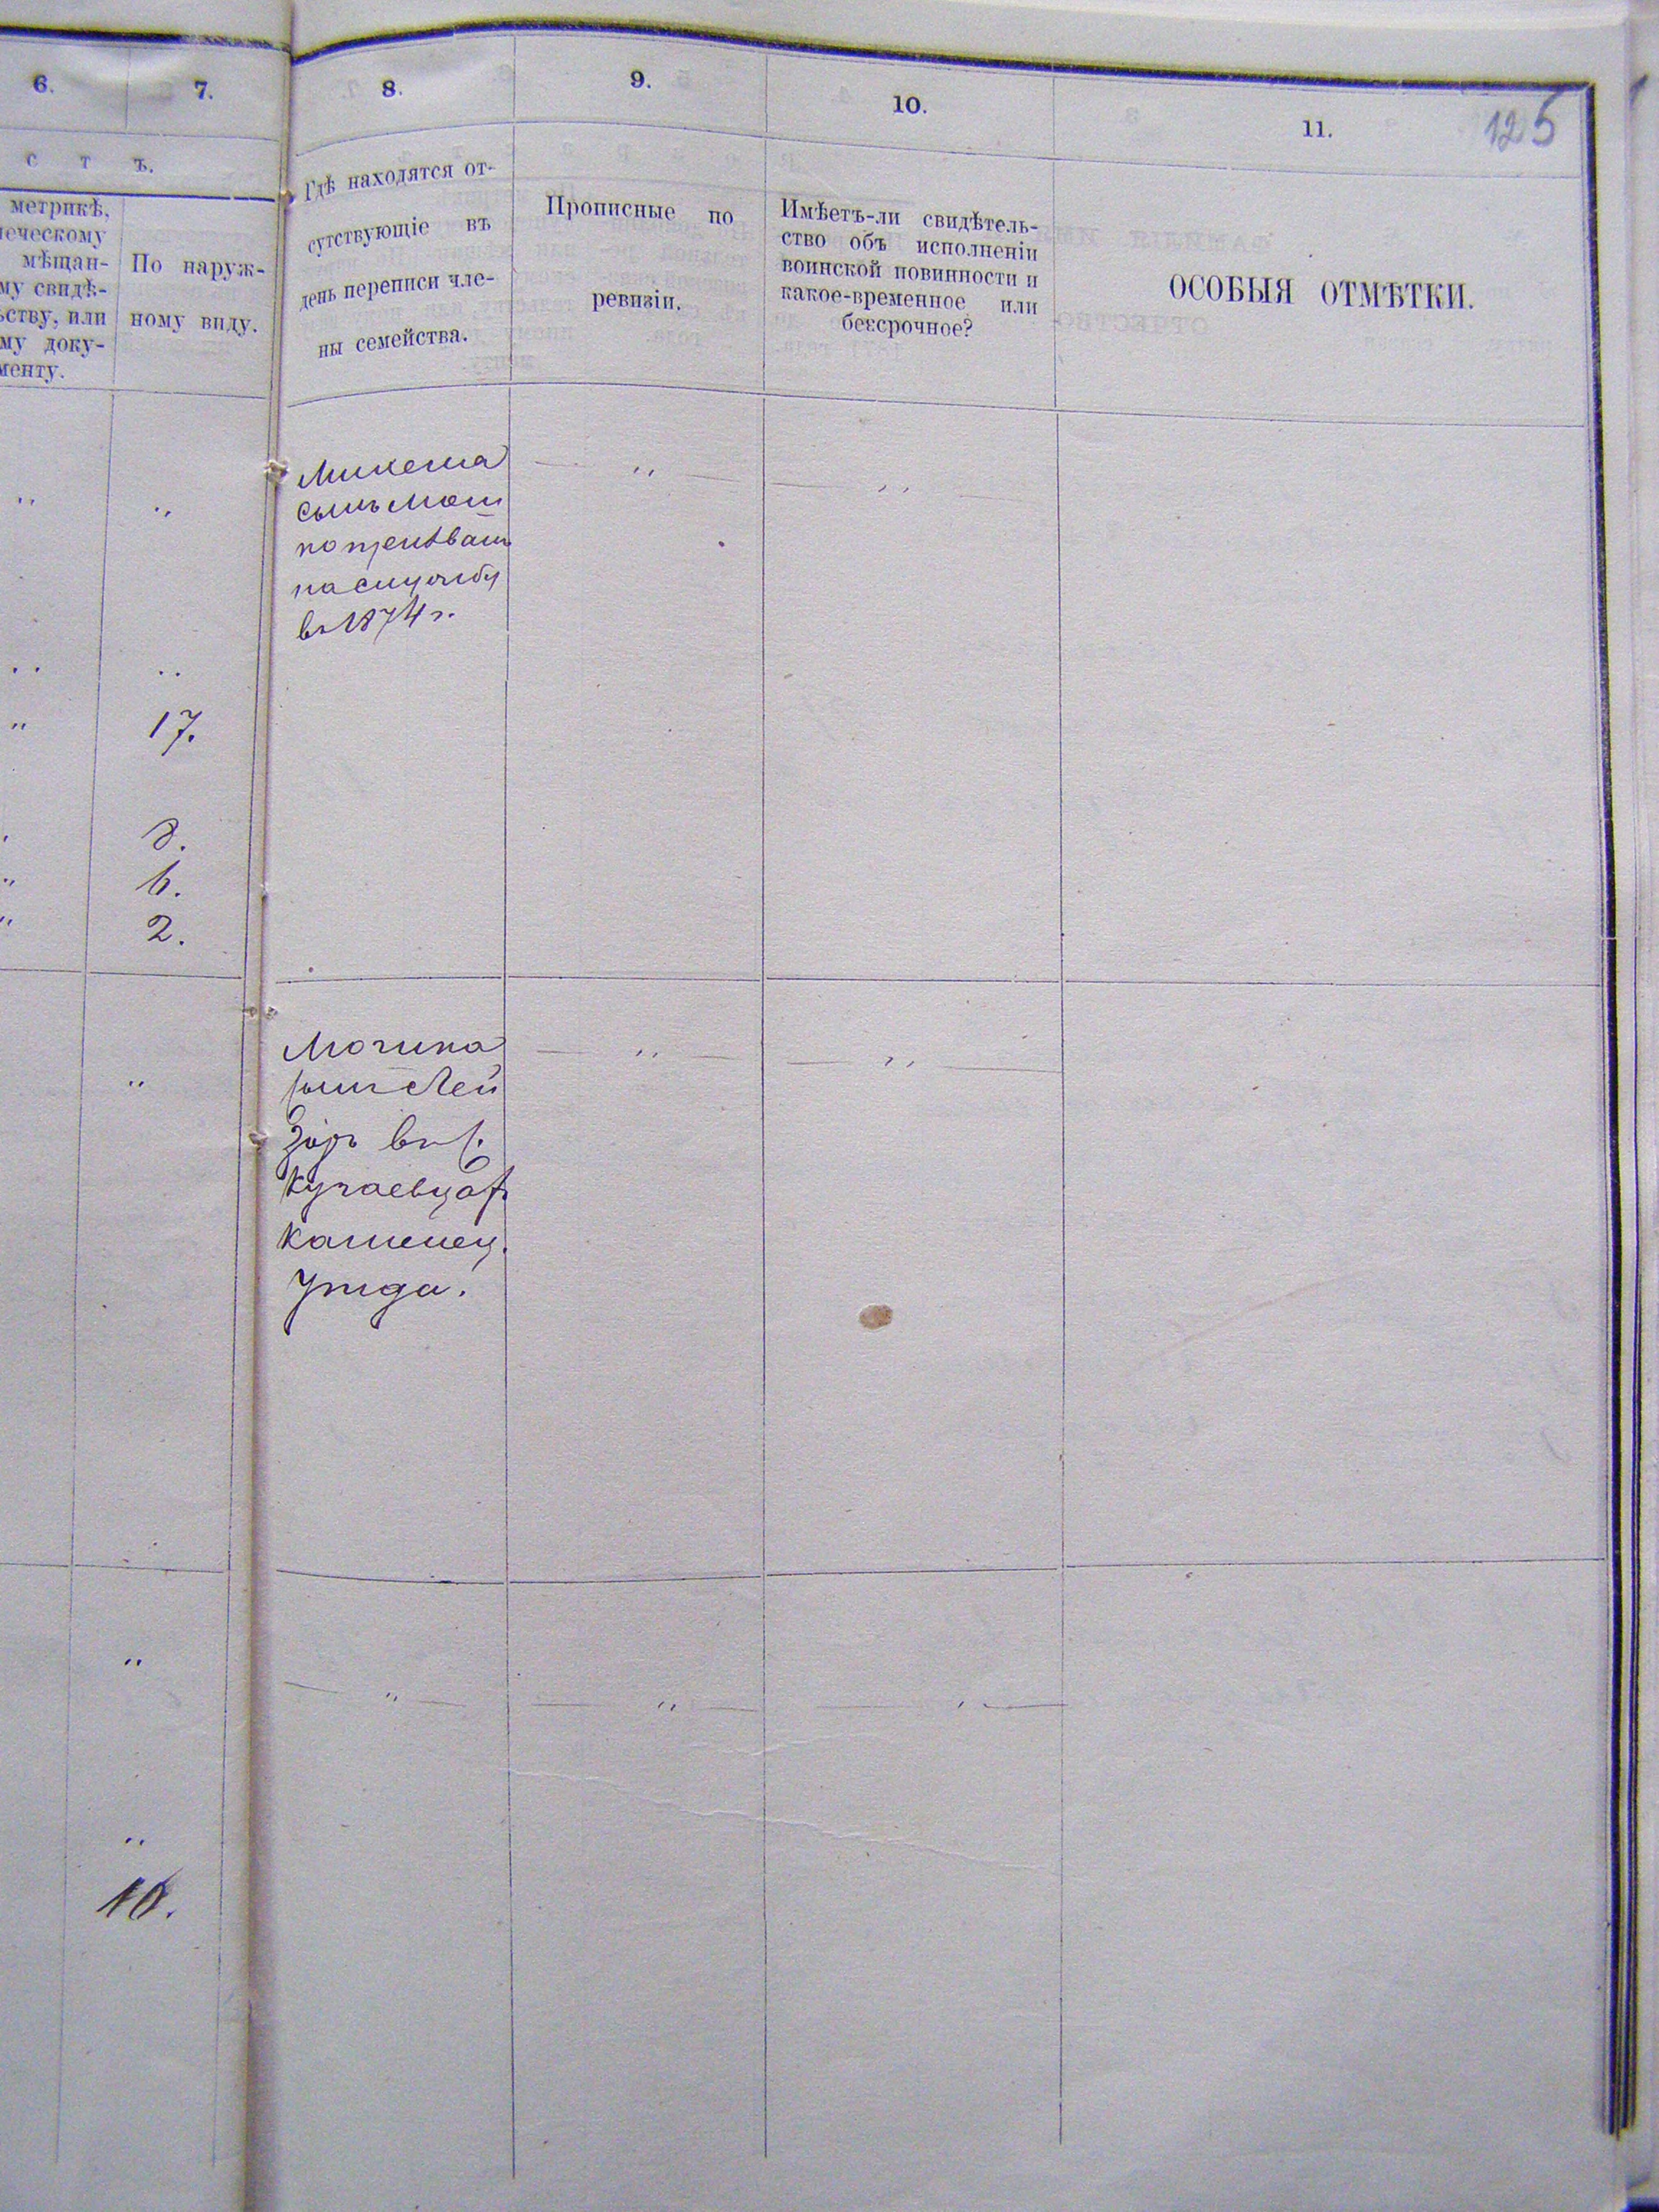 6.
7.
8.
9.
10.
11.
125
с т ъ.
метрикѣ,
мѣщан-
му свидѣ-
ству, или
му доку-
менту.
По наруж-
ному виду.
Гдѣ находятся от-
сутствующіе въ
день переписи чле-
ны семейства.
Прописные по
ревизіи.
Имѣетъ-ли свидѣтель-
ство объ исполненіи
воинской повинности и
какое-временное или
безсрочное?
ОСОБЫЯ ОТМѢТКИ.
сынъ Мот
на службу
въ 1874 г.
17.
8.
6.
2.
сынъ Лей
зоръ въ с.
Каменец.
уѣзда.
10.